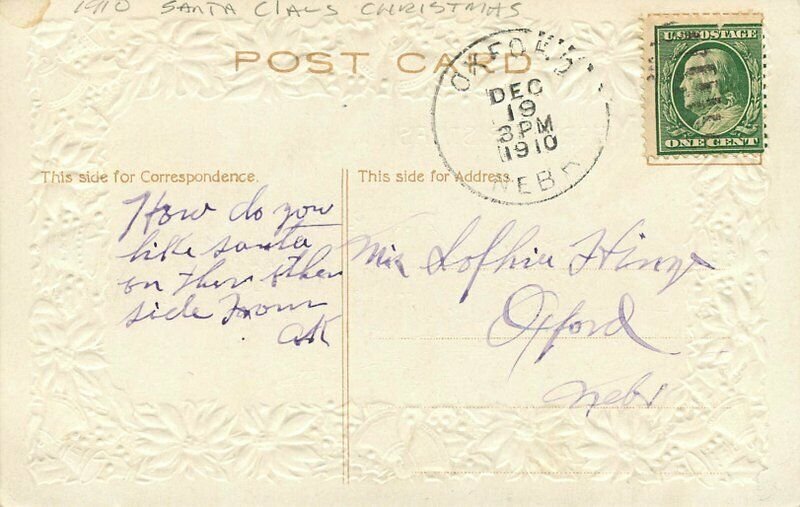 1910 SANTA CLAUS CHRISTMAS
POST CARD
OXFORD
DEC
19
3PM
1910
NEBR
U.S. POSTAGE
ONE CENT
This side for Correspondence.
How do you
like santa
on ther other
side From
AK
This side for Address.
Miss Sofhie
Oxford
Nebr